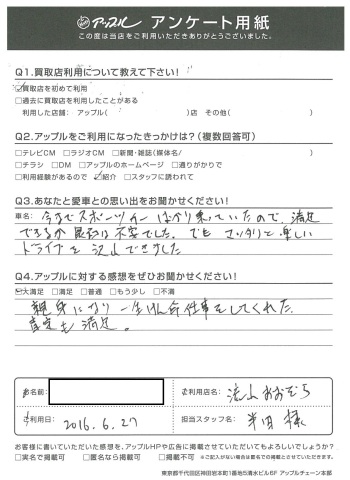 アップル アンケート用紙
この度は当店をご利用いただきありがとうございました。
Q1.買取店利用について教えて下さい!
□買取店を初めて利用
□過去に買取店を利用したことがある
利用した店舗: アップル( )店 その他( )
Q2.アップルをご利用になったきっかけは?(複数回答可)
□テレビCM □ラジオCM □新聞・雑誌(媒体名/ )
□チラシ □DM □アップルのホームページ □通りがかりで
□利用経験があるので □紹介 □スタッフに誘われて
Q3.あなたと愛車との思い出をお聞かせください!
車名: 今までスポーツカーばかり乗っていたので、満足
できるか最初は不安でした。でもマッタリと楽しい
ドライブを沢山できました
Q4.アップルに対する感想をぜひお聞かせください!
□大満足 □満足 □普通 □もう少し □不満
親身になり一生けん命仕事をしてくれた。
査定も満足。
お名前:
ご利用店名: 流山おおぞら
ご利用日: 2016.6.27
担当スタッフ名: 半田 様
お客様に書いていただいた感想を、アップルHPや広告に掲載させていただいてもよろしいでしょうか?
□実名で掲載可 □匿名なら掲載可 □掲載不可 ※ご記入がない場合は匿名での掲載とさせていただきます。
東京都千代田区神田岩本町1番地5清水ビル6F アップルチェーン本部